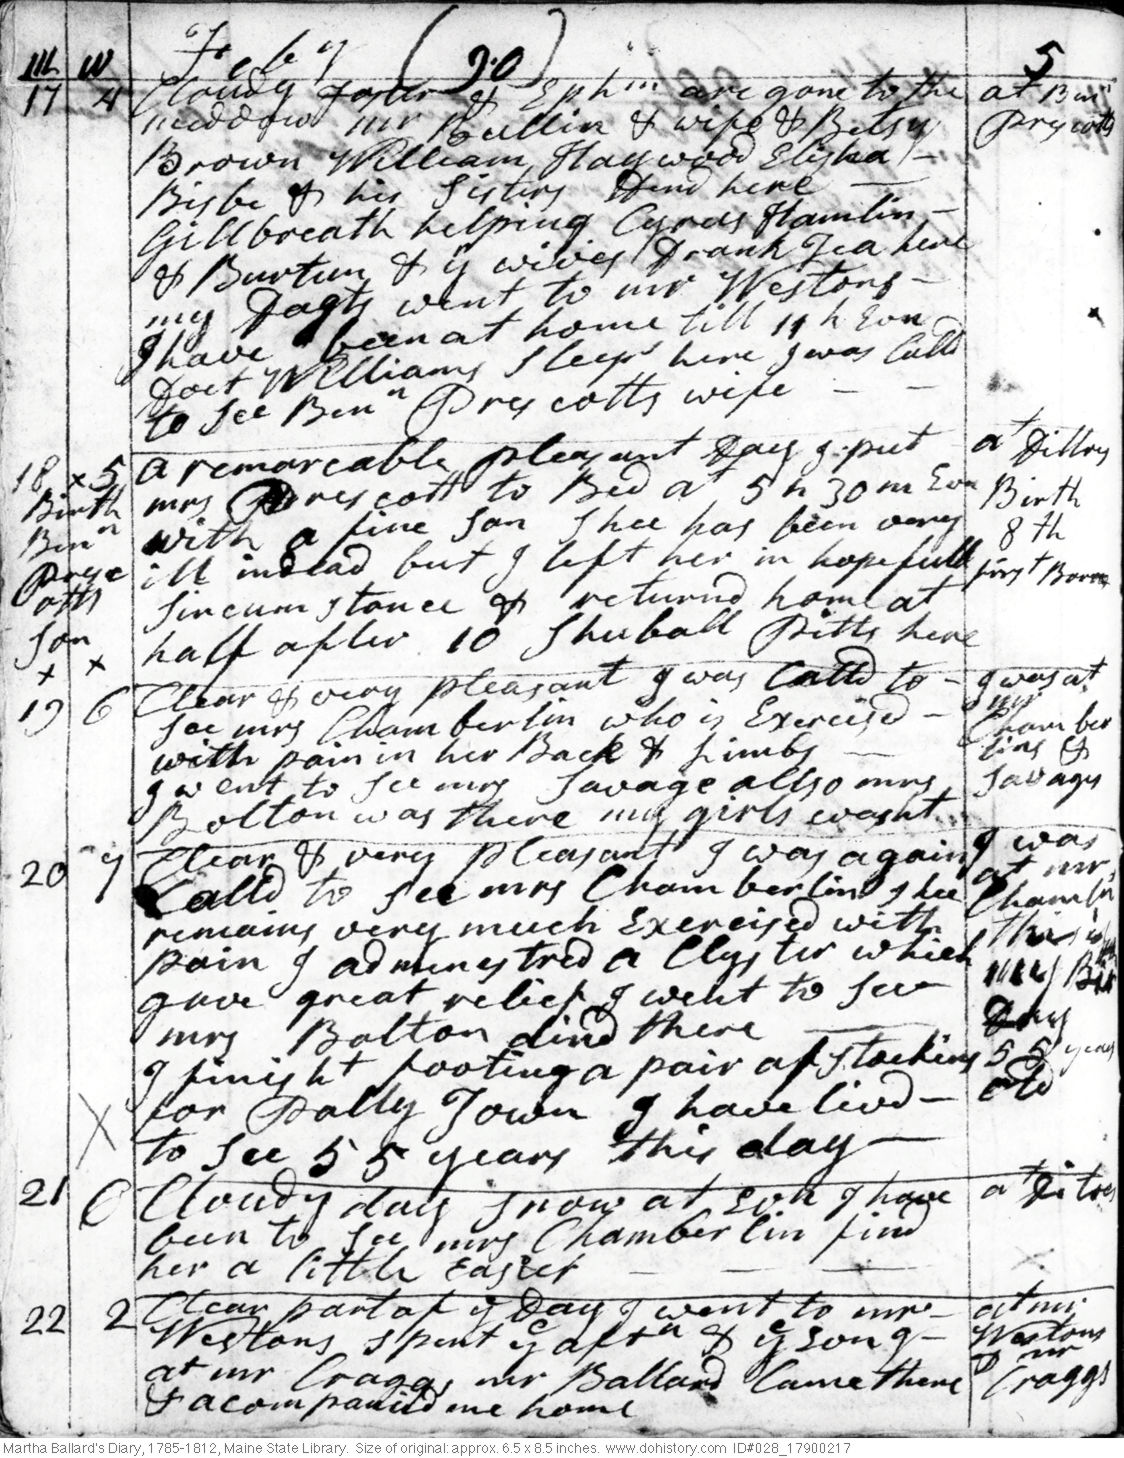 m w Feby (90) 5
17 4 Cloudy Foster & Ephm are gone to the at Benn
meddow mr Bullin & wife & Betsy Prescotts
Brown William Haywood Elisha
Bisbe & his Sisters Dind here
Gillbreath helping Cyrus Hamlin
& Burtun & y wives Drank Tea here
my Dagts went to mr Westons
I have been at home till 11 h Evn
Doct Williams Sleeps here I was Calld
to See Benn Prescotts wife
18 x 5 a remarcable pleasant Day I put at Dittoes
Birth mrs Prescott to Bed at 5 h 30 m Evn Birth
Benn with a fine Son Shee has been very 8th
Presc ill indead but I left her in hopefull first Born
otts Sircumstance & returnd home at
Son half after 10 Shuball Pitts here
x x
19 6 Clear & very pleasant I was Calld to I was at
See mrs Chamberlin who is Exercised mr Chamber
with pain in her Back & Limbs lins &
I went to See mrs Savage allso mrs Savages
Bolton was there my girls washt
20 7 Clear & very pleasant I was again I was
Calld to See mrs Chamberlin Shee at mr
remains very much Exercised with Chamln
pain I adminestred a Clyster which this is
gave great relief I went to See my Birth
mrs Bolton dind there Day
I finisht footing a pair of Stockins 55 years
X for Polly Town I have livd old
to See 55 years this day
21 C Cloudy day snow at Evn I have at Ditoes
been to See mrs Chamberlin find
her a little Easier
22 2 Clear part of y Day I went to mr at mr
Westons spent y aftn & y Evng Westons
at mr Craggs mr Ballard Came there & mr
& acompanied me home Craggs
Martha Ballard's Diary, 1785-1812, Maine State Library. Size of original: approx. 6.5 x 8.5 inches. www.dohistory.com ID#028_17900217